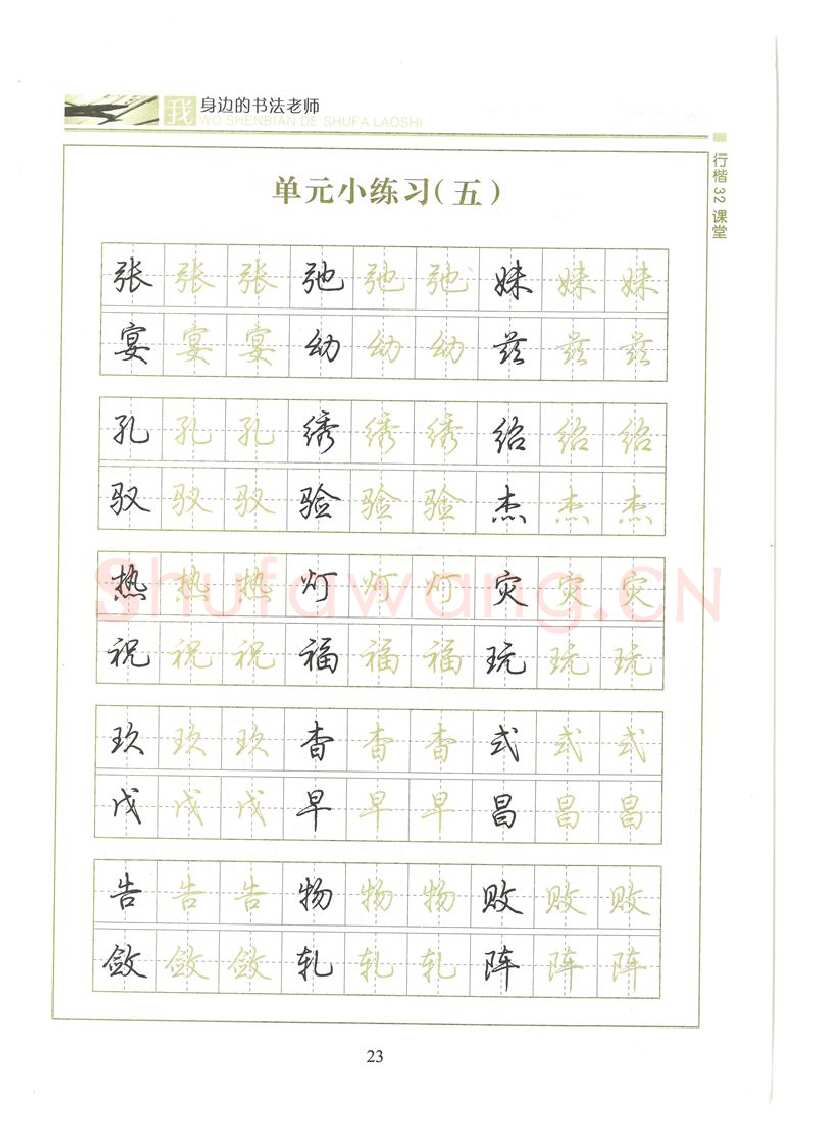 我 身边的书法老师
WO SHENBIAN DE SHUFA LAOSHI
行楷32课堂
单元小练习(五)
张张张弛弛弛妹妹妹
宴宴宴幼幼幼兹兹兹
孔孔孔绣绣绣绍绍绍
驭驭驭验验验杰杰杰
热热热灯灯灯灾灾灾
Shufawang.CN
祝祝祝福福福玩玩玩
玖玖玖杳杳杳式式式
戊戊戊早早早昌昌昌
告告告物物物败败败
敛敛敛轧轧轧阵阵阵
23